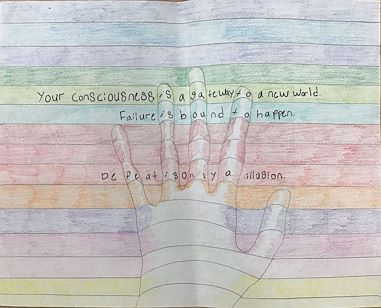 Your consciousness is a gateway to a new world.
Failure is bound to happen.
Defeat is only a illusion.